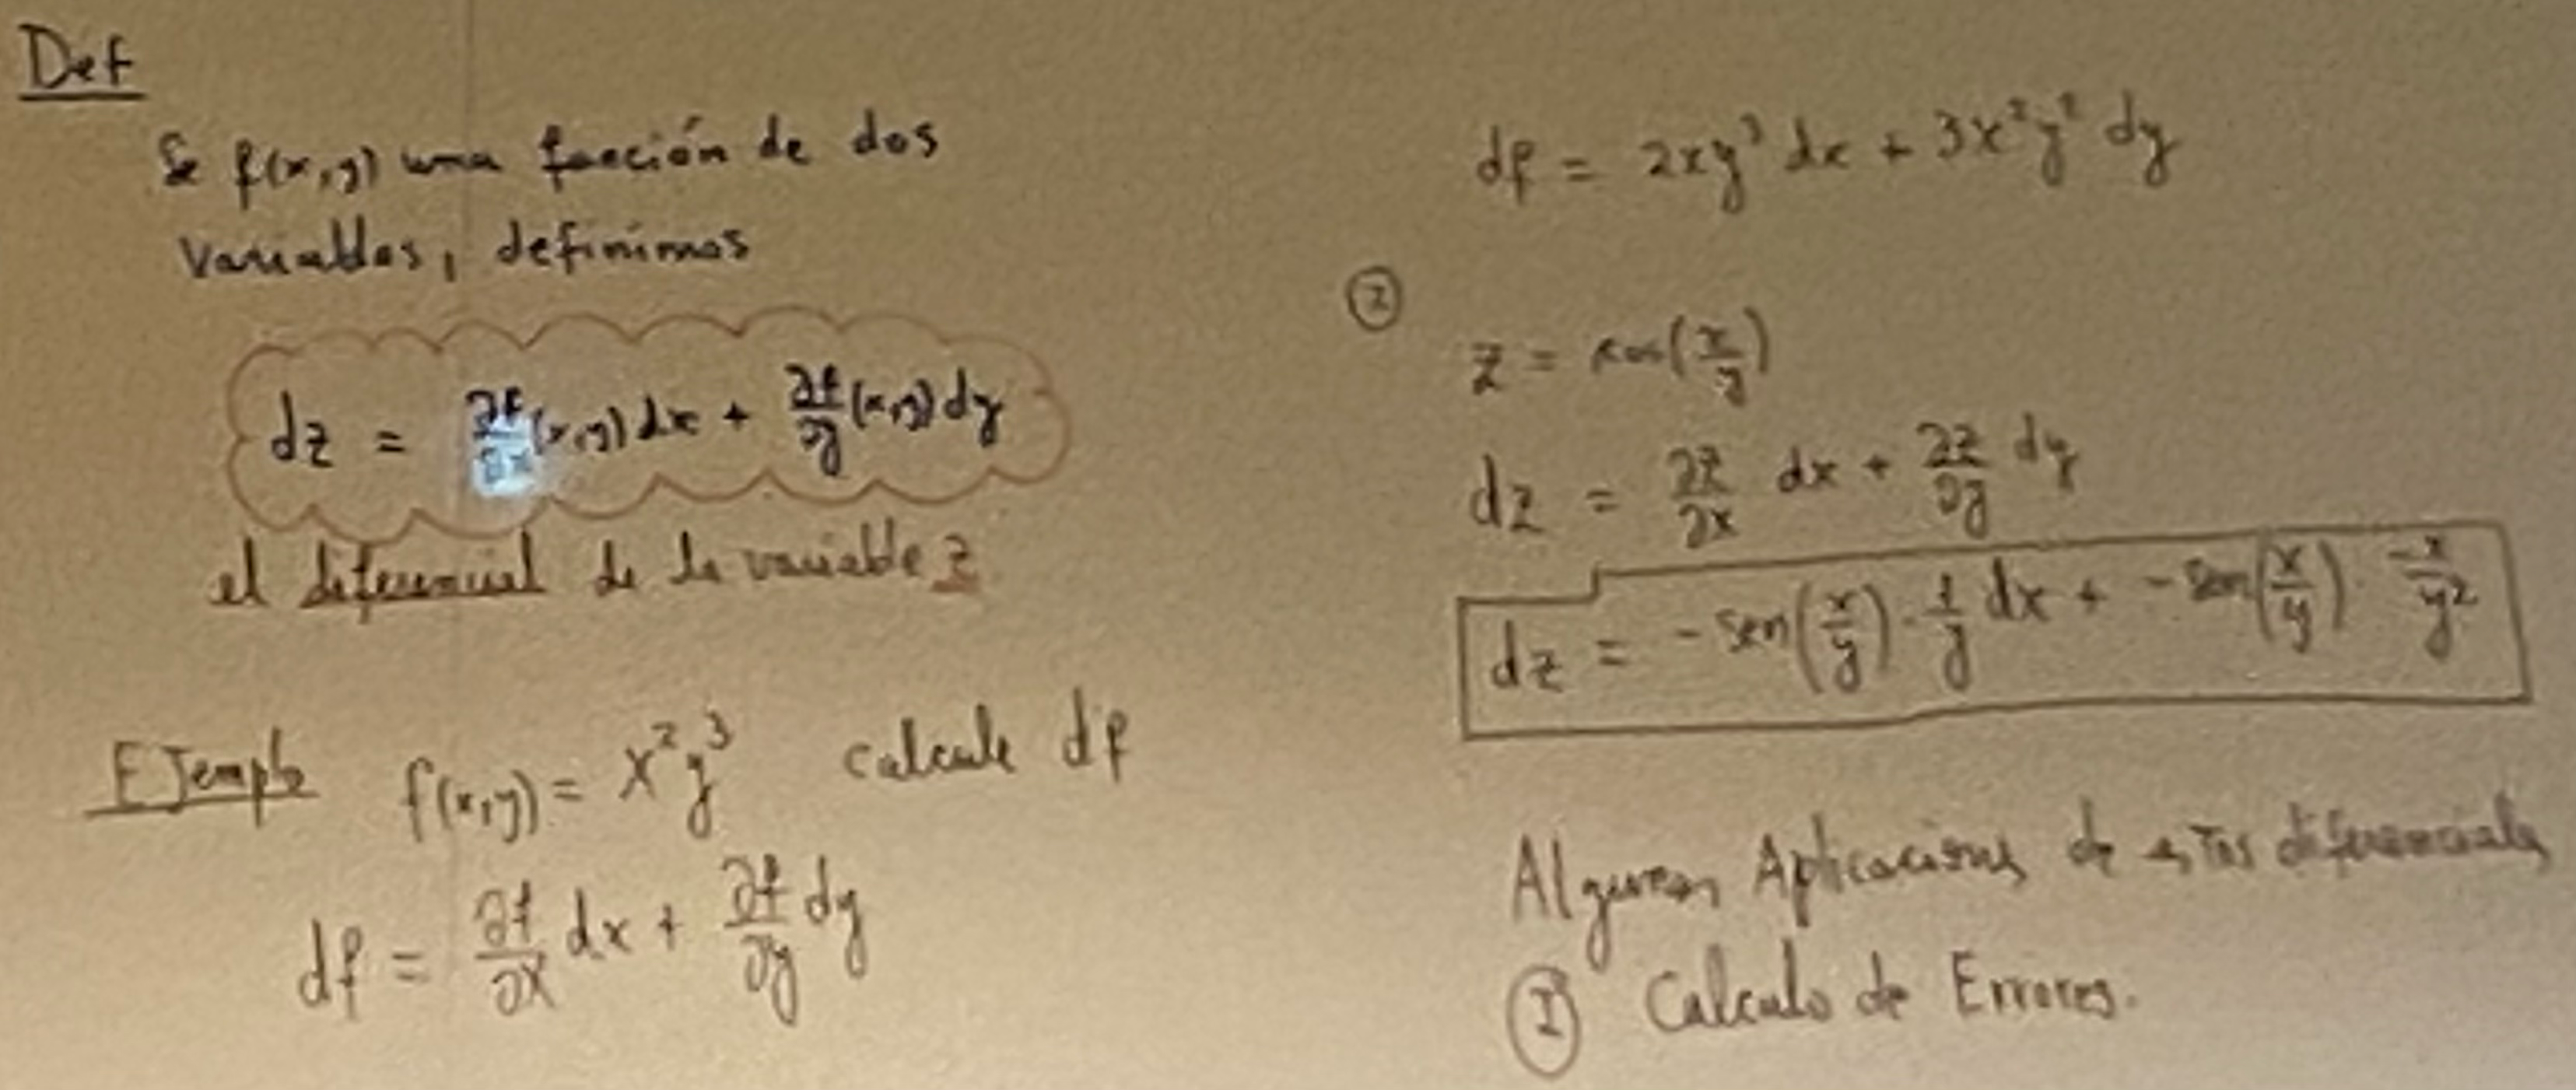 Def
Se f(x,y) una función de dos
variables, definimos
dz = ∂f/∂x (x,y) dx + ∂f/∂y (x,y) dy
el diferencial de la variable z
EJemplo f(x,y) = x²y³ calcule df
df = ∂f/∂x dx + ∂f/∂y dy
df = 2xy³ dx + 3x²y² dy
②
z = cos(x/y)
dz = ∂z/∂x dx + ∂z/∂y dy
dz = -sen(x/y) · 1/y dx + -sen(x/y) · -x/y²
Algunas Aplicaciones de estas diferenciales
① Calculo de Errores.